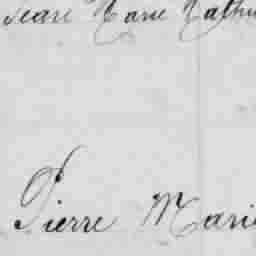 Jean Marie Mathu
Pierre Mari